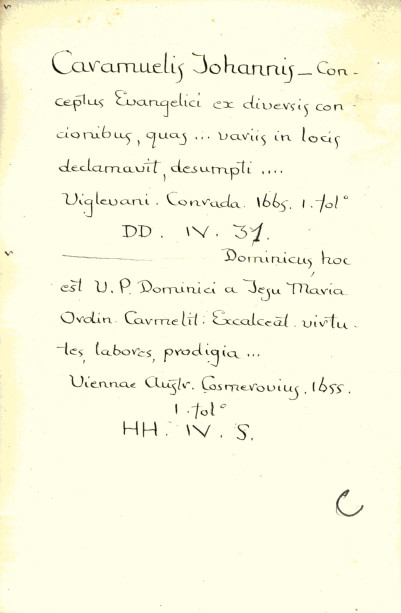 Caramuelis Johannis_ Con-
ceptus Evangelici ex diversis con-
cionibus, quas ... variis in locis
declamavit, desumpti ....
Viglevani. Conrada. 1665. 1. fol°
DD. IV. 37.
Dominicus, hoc
est V. P. Dominici a Jesu Maria
Ordin. Carmelit. Excalceat. virtu-
tes, labores, prodigia ...
Viennae Austr. Cosmerovius, 1655.
1. fol°
HH. IV. S.
C